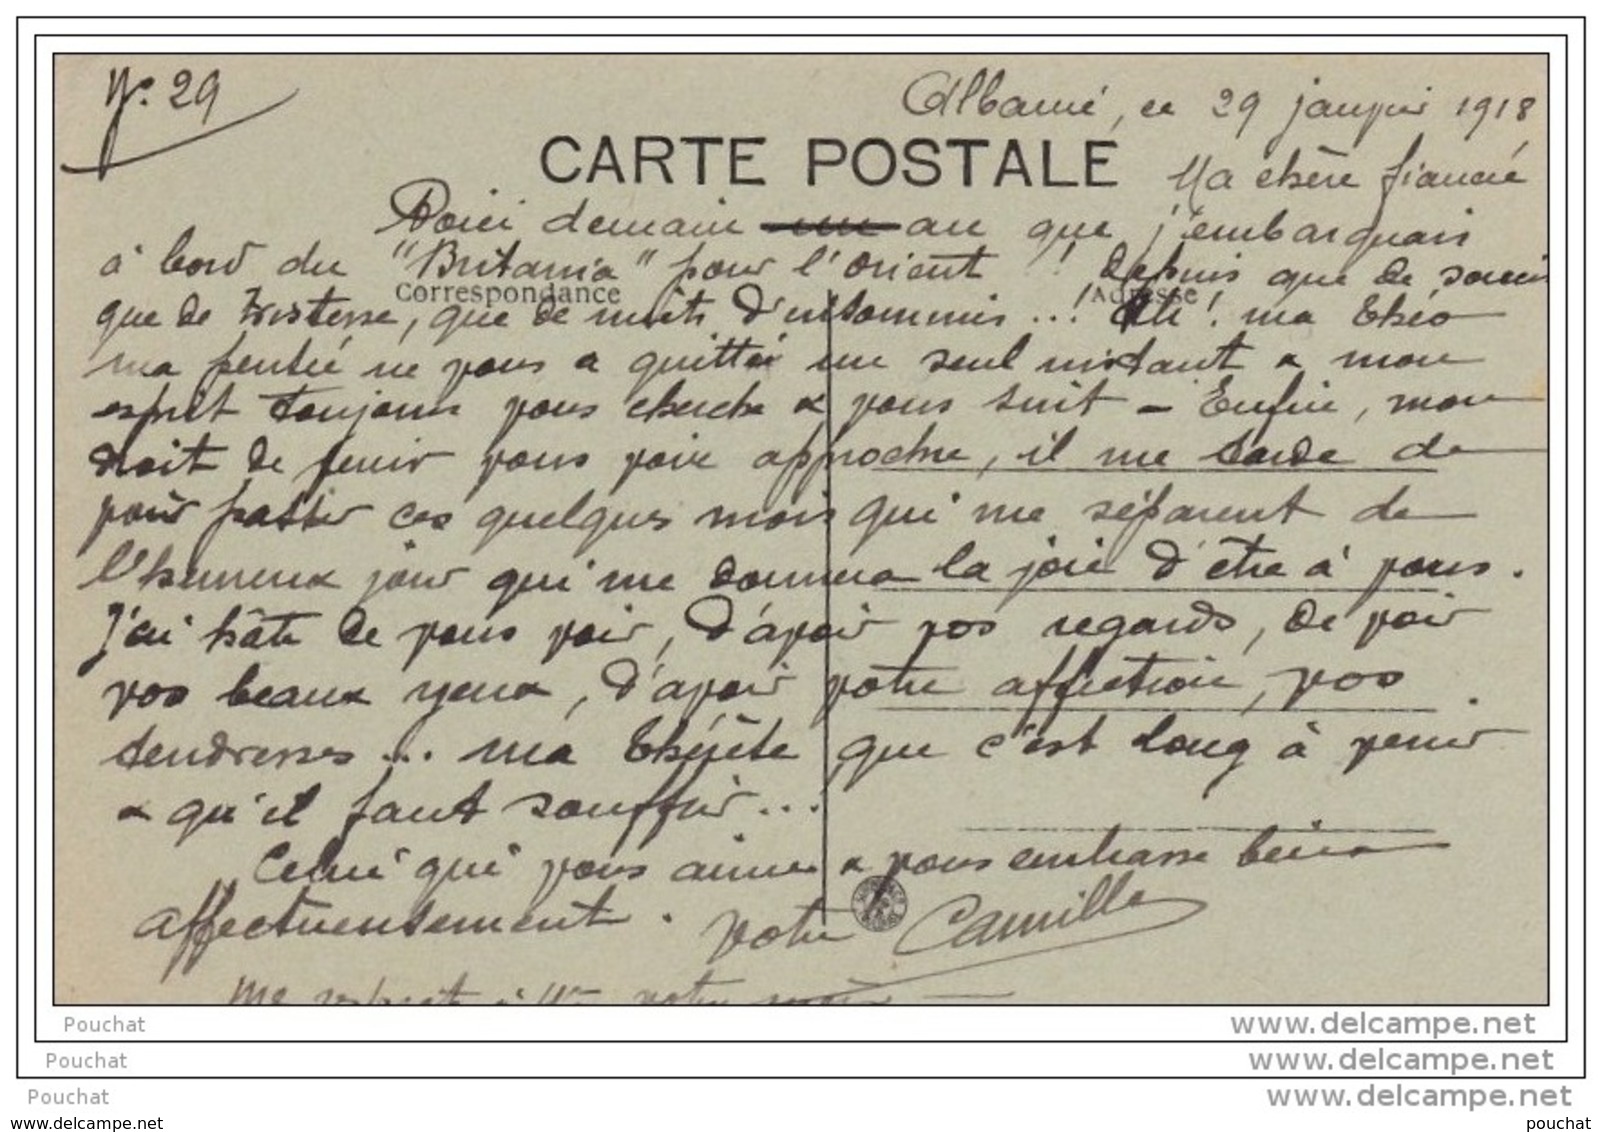 N°. 29
Albanie, ce 29 janvier 1918
CARTE POSTALE
Ma chère fiancée
Voici demain un an que j'embarquais
à bord du "Britania" pour l'Orient !! depuis que de soucis
Correspondance
Adresse
que de tristesse, que de nuits d'insomnies...! Ah! ma Théo
ma pensée ne vous a quittée un seul instant & mon
esprit toujours vous cherche & vous suit - Enfin, mon
droit de venir vous voir approche, il me tarde de
voir passer ces quelques mois qui me séparent de
l'heureux jour qui me donnera la joie d'être à vous.
J'ai hâte de vous voir, d'avoir vos regards, de voir
vos beaux yeux, d'avoir votre affection, vos
tendresses... ma que c'est long à venir
& qu'il faut souffrir...
Celui qui vous aime & vous embrasse bien
affectueusement. votre Camille
respect à Mme votre
Pouchat
www.delcampe.net
Pouchat
www.delcampe.net
Pouchat
www.delcampe.net
www.delcampe.net
pouchat